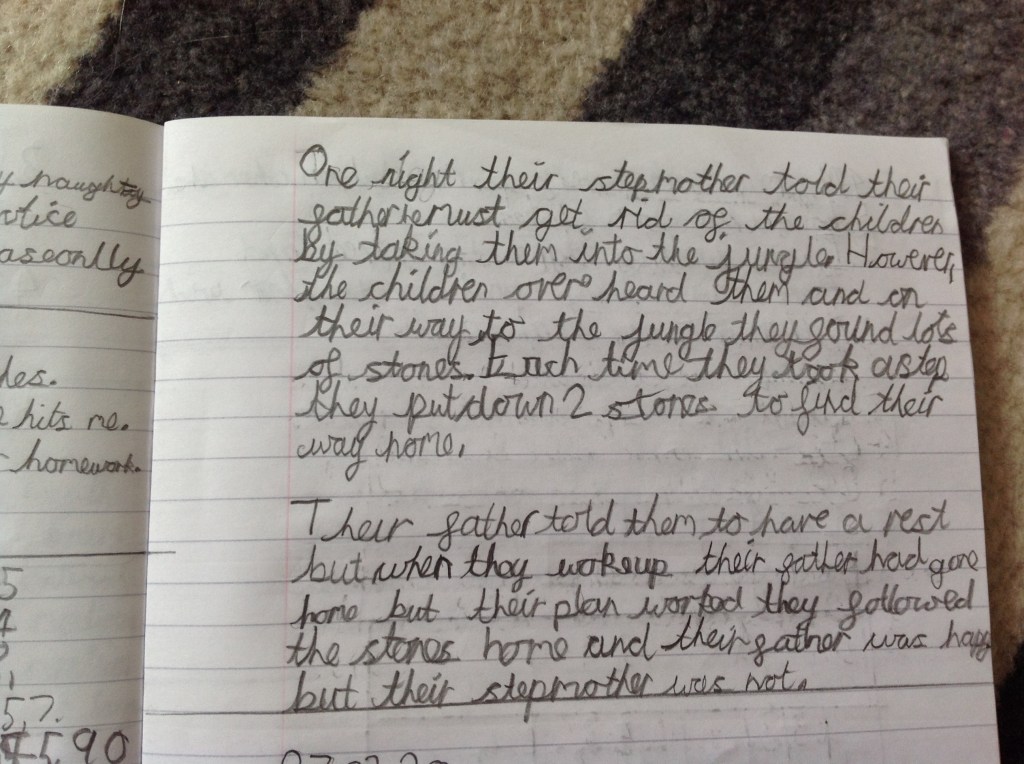 y naughty
otice
aseonlly
les.
hits me.
homework.
5
1
5,7.
5,90
One night their stepmother told their
father he must get rid of the children
By taking them into the jungle. However,
the children over heard them and on
their way to the jungle they found lots
of stones. Each time they took a step
they put down 2 stones to find their
way home.
Their father told them to have a rest
but when they wokeup their father had gone
home but their plan worked they followed
the stones home and their father was happy
but their stepmother was not.